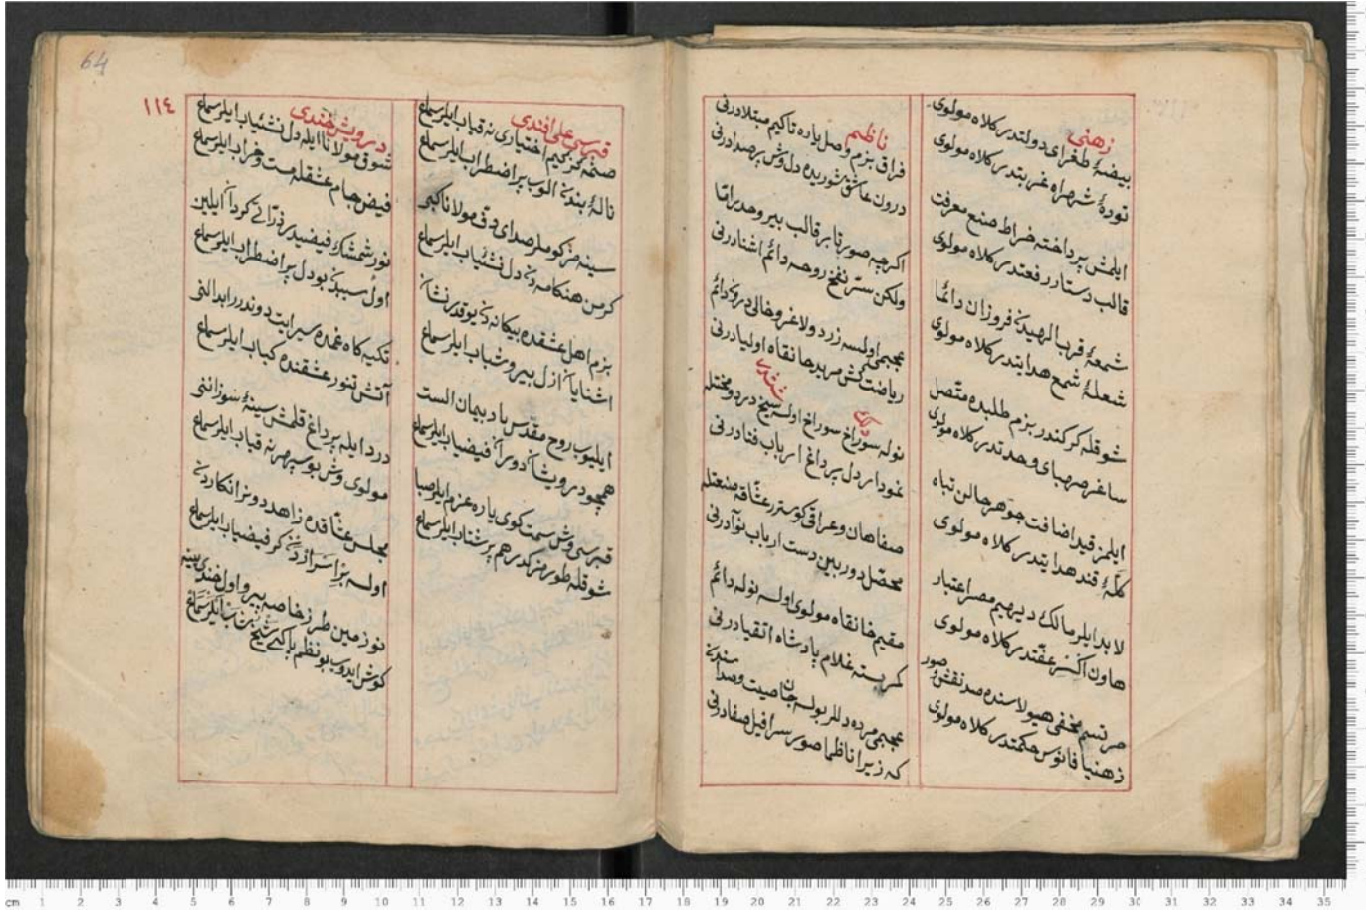 زهنی
بیضهٔ طغرای دولتدر کلاه مولوی
تودهٔ شهراه غربتدر کلاه مولوی
ایلمش پرداخته خراط صنع معرفت
قالب دستار رفعتدر کلاه مولوی
شمعهٔ قرب الهیدن فروزان دائما
شعلهٔ شمع هدایتدر کلاه مولوی
شوقله کر کندر بزم طلبده متصل
ساغر صهبای وحدتدر کلاه مولوی
ایلمز قید اضافت جوهر حالن تباه
کلهٔ قند هدایتدر کلاه مولوی
لابد ایلر مالک دیهیم مصر اعتبار
هاون اکسیر عفتدر کلاه مولوی
مرتسم مخفی هیولاسنده صد نقش صور
ذهنیا فانوس حکمتدر کلاه مولوی
ناظم
فراق بزم وصل یاره تا کیم مبتلادر نی
درون عاشق شوریده دل وش پر صدادر نی
اکرچه صورتا بر قالب بیروحدر اما
ولکن سر نفخ روحه دائم اشنادر نی
عجبمی اولسه زرد ولاغر وخالی درون دائم
ریاضت کش مرید خانقاه اولیادر نی
نوله سوراخ سوراخ اولسه سیخ درد ومحنتله
نمودار دل پر داغ ارباب فنادر نی
صفاهان وعراقی کوستر عشاقه
محصل دوربین دست ارباب نوادر نی
مقیم خانقاه مولوی اولسه نوله دائم
کمر بسته غلام پادشاه اتقیادر نی
عجبمی مرده دللر بولسه جان صیت وصداسندن
که زیرا ناظما صور سرافیل صفادر نی
قبرسی علی افندی
صنمه کز کیم اختیاری نه قباب ایلر سماع
نالهٔ بندن الوب پر اضطراب ایلر سماع
سینه مز کوملر صدای دف مولانا کبی
کرمن هنکامه دن دل نشئیاب ایلر سماع
بزم اهل عشقده بیکانه دن یوقدر نشان
اشنایان ازل پیر وشباب ایلر سماع
ایلیوب روح مقدس یاد پیمان الست
همچو درویشان دوران فیضیاب ایلر سماع
قبرسی وش سمت کوی یاره عزم ایلر صبا
شوقله طورمز کدر هم پر شتاب ایلر سماع
١١٤
درویش خندی
شوق مولانا ایله دل نشئیاب ایلر سماع
فیض جام عشقله مست وخراب ایلر سماع
نور شمشک فیضیدر ذراتی کردان ایلین
اول سببدن بو دل پر اضطراب ایلر سماع
تکیه کاه غمده سیرایت دوندرر ابدالنی
آتش تنور عشقنده کباب ایلر سماع
درد ایله پر داغ قلمش سینهٔ سوزاننی
مولوی وش بو سپهر نه قباب ایلر سماع
مجلس عشاقده زاهد دونر انکاردن
اولسه بزم اسراردن کر فیضیاب ایلر سماع
نوزمین طرز خاصه پیرو اول خندی
کوش ایدوب بو نظم پاکی شیخ شاب ایلر سماع
64